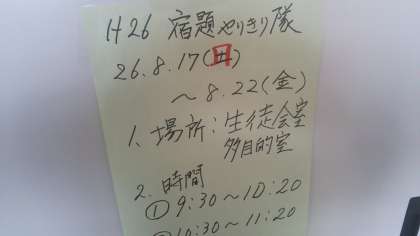 H26 宿題やりきり隊
26.8.17(日)
〜8.22(金)
1.場所:生徒会室
多目的室
2.時間
①9:30〜10:20
②10:30〜11:20